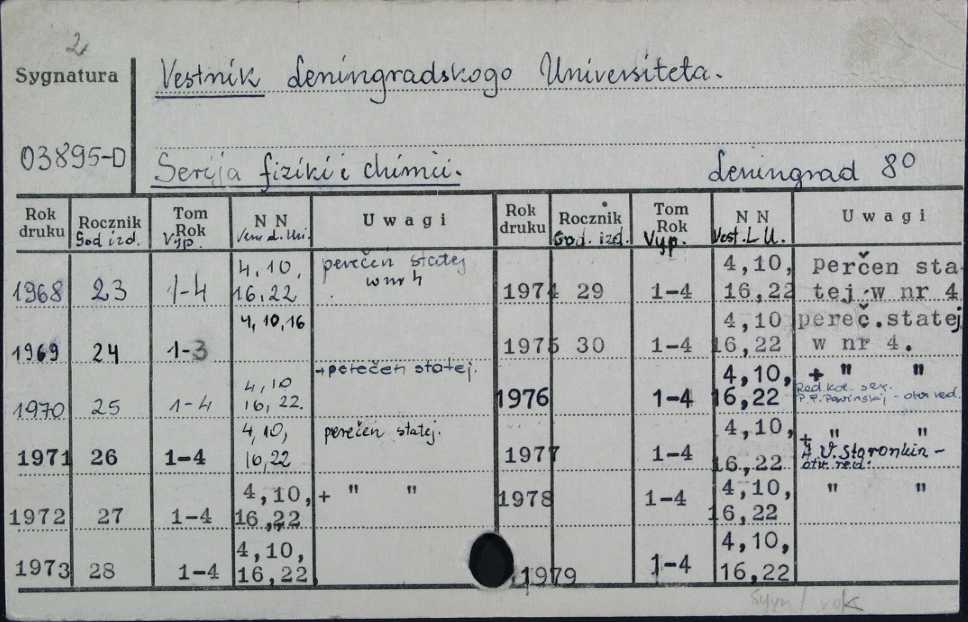 2
Sygnatura Vestnik Leningradskogo Universiteta.
03895-D Serija fiziki i chimii. Leningrad 8°
Rok druku Rocznik God izd. Tom Rok Vyp. N N Uwagi Rok druku Rocznik God. izd. Tom Rok Vyp. N N Vest. L U. Uwagi
1968 23 1-4 4, 10, 16, 22 perečen statej w nr 4 1974 29 1-4 4, 10, 16, 22 perčen sta-tej w nr 4
1969 24 1-3 4, 10, 16 1975 30 1-4 4, 10 16, 22 pereč. statej w nr 4.
1970 25 1-4 4, 10 16, 22. + perečen statej. 1976 1-4 4, 10, 16, 22 + " " Red kol. ser.
1971 26 1-4 4, 10, 16, 22 perečen statej. 1977 1-4 4, 10, 16, 22 + " " A. V. Storonkin - otv. red.
1972 27 1-4 4, 10, 16, 22 + " " 1978 1-4 4, 10, 16, 22 " "
1973 28 1-4 4, 10, 16, 22 1979 1-4 4, 10, 16, 22
Sygn / rok